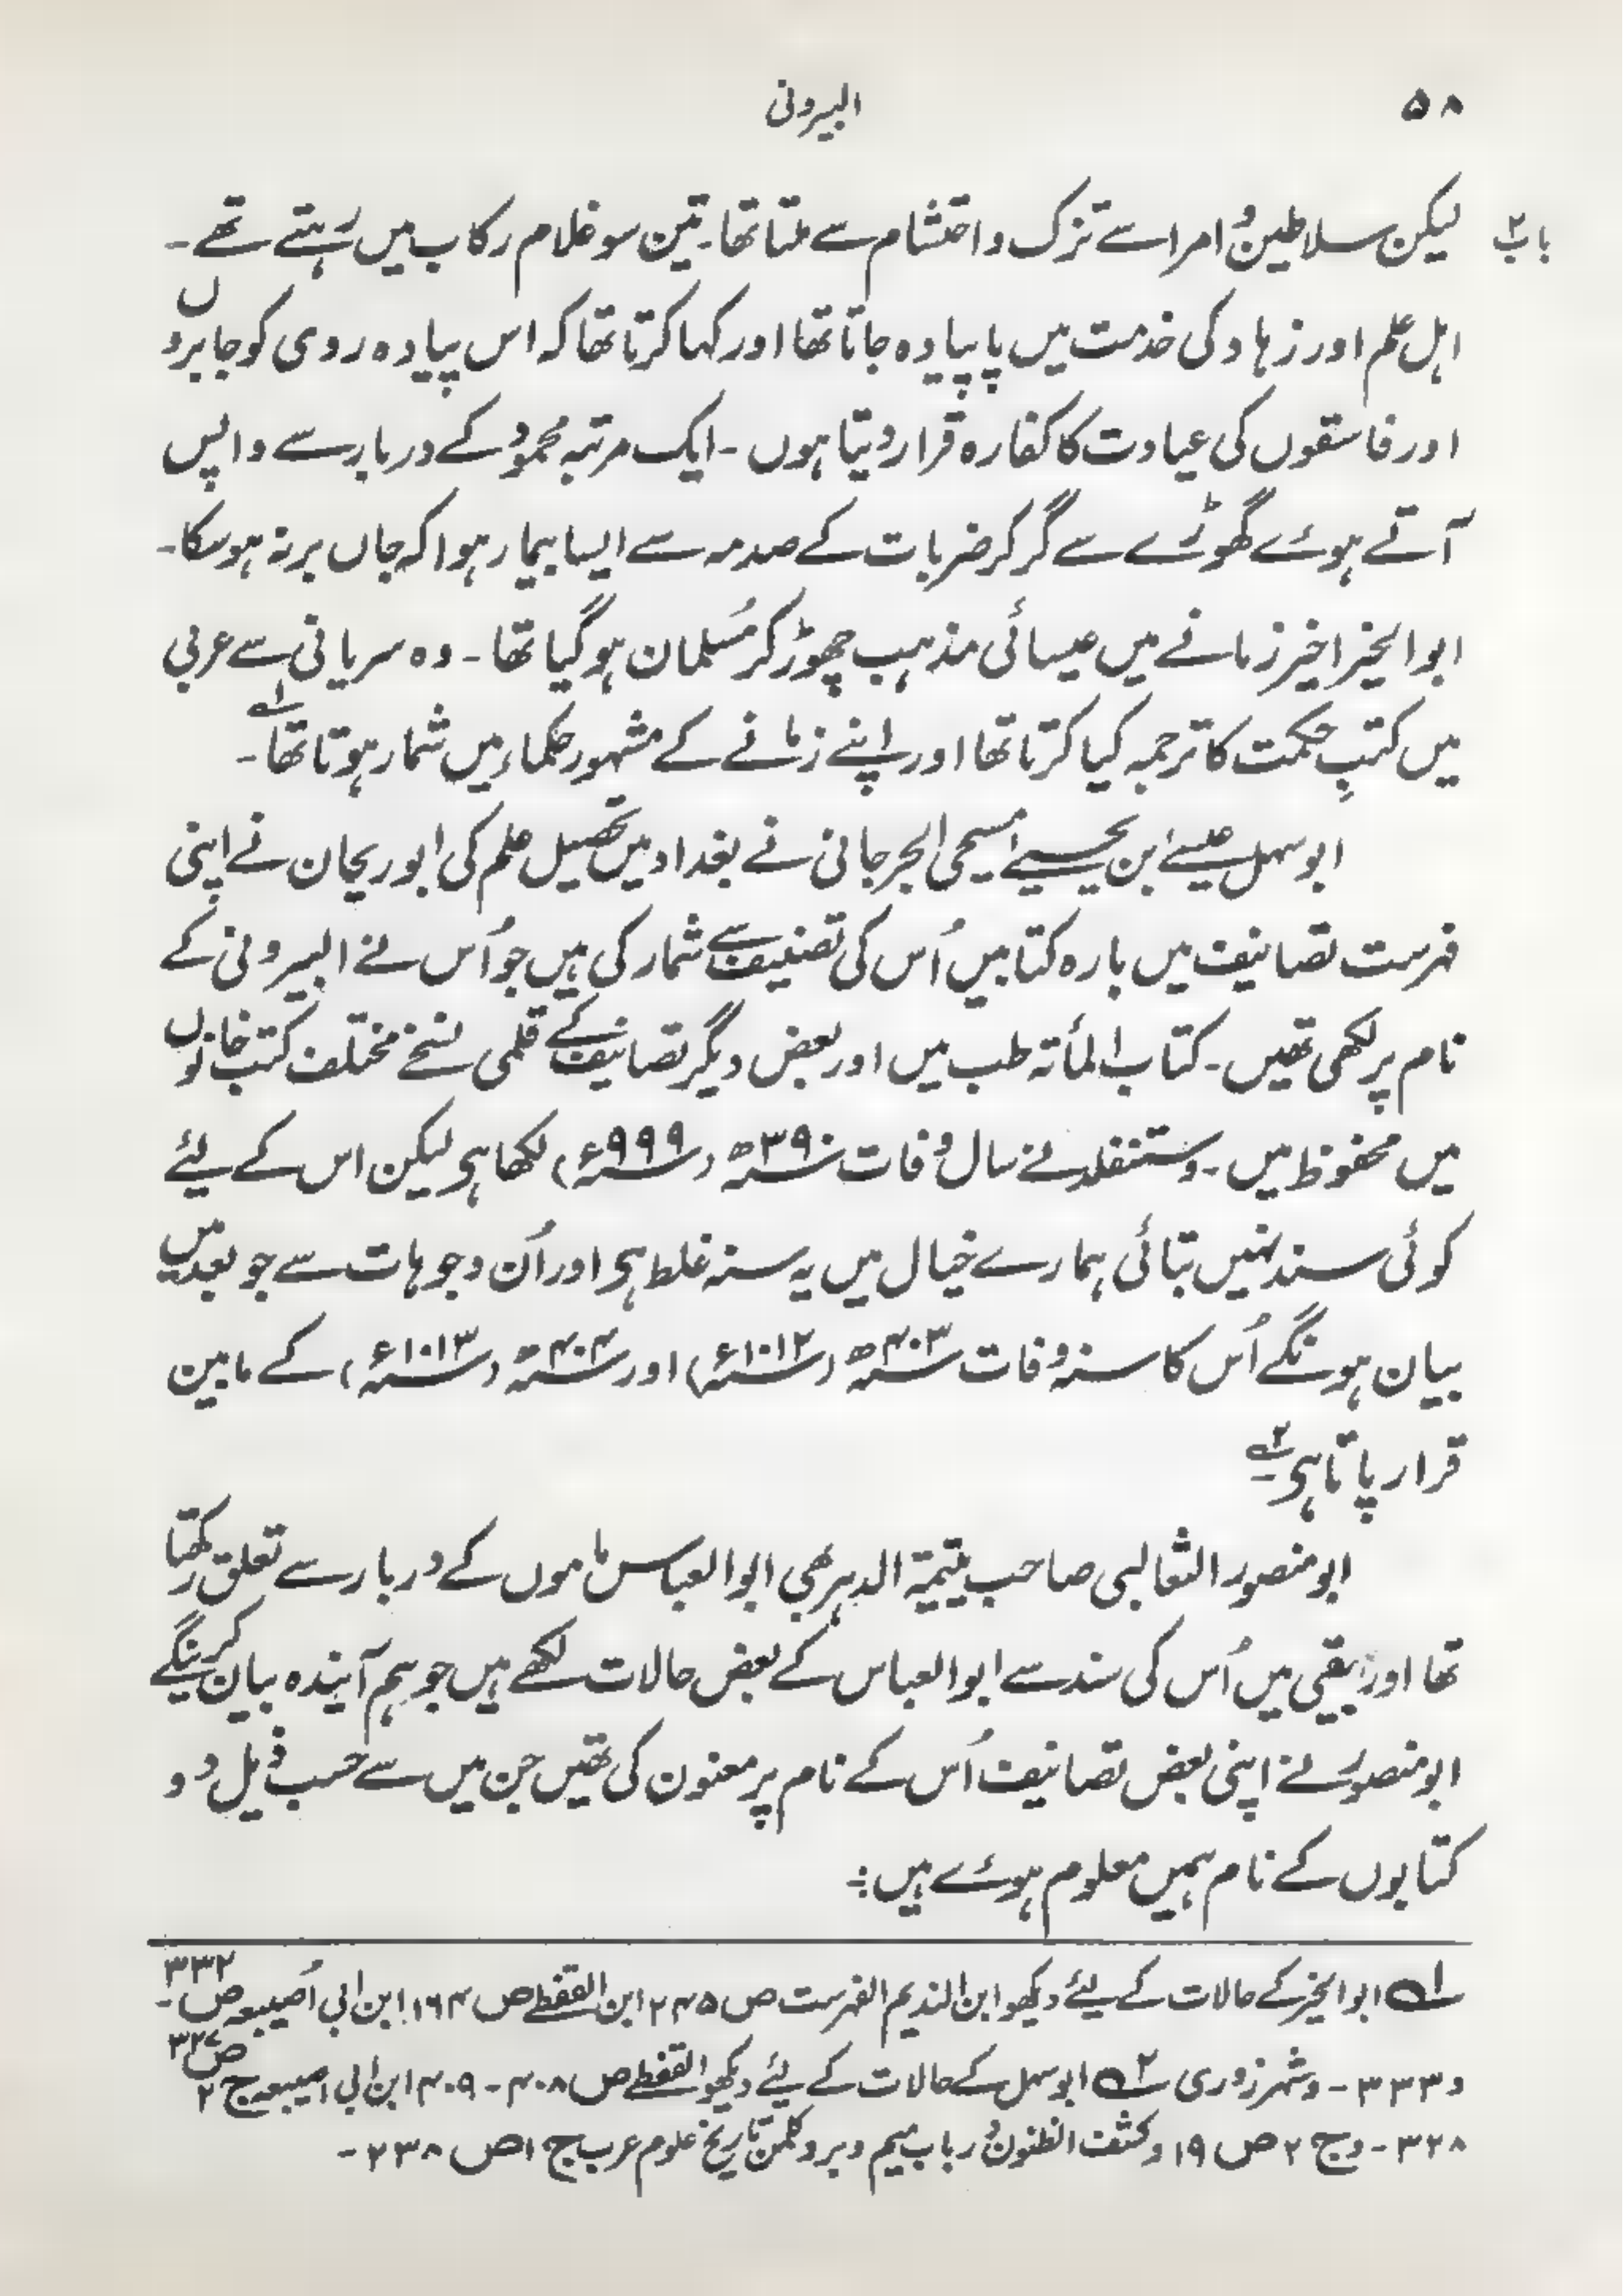 ۵۸ البیرونی
باب ۲
لیکن سلاطین و امرا سے تزک و احتشام سے ملتا تھا۔ تین سو غلام رکاب میں رہتے تھے۔
اہل علم اور زہاد کی خدمت میں پا پیادہ جاتا تھا اور کہا کرتا تھا کہ اس پیادہ روی کو جابروں
اور فاسقوں کی عیادت کا کفارہ قرار دیتا ہوں ۔ ایک مرتبہ محمود کے دربار سے واپس
آتے ہوئے گھوڑے سے گر کر ضربات کے صدمہ سے ایسا بیمار ہوا کہ جاں بر نہ ہوسکا۔
ابو الخیر اخیر زمانے میں عیسائی مذہب چھوڑ کر مُسلمان ہو گیا تھا ۔ وہ سریانی سے عربی
میں کتبِ حکمت کا ترجمہ کیا کرتا تھا اور اپنے زمانے کے مشہور حکماء میں شمار ہوتا تھا ۱؎ ۔
ابو سہل عیسے ابن یحییے المسیحی الجرجانی نے بغداد میں تحصیل علم کی ابو ریحان نے اپنی
فہرست تصانیف میں بارہ کتابیں اُس کی تصنیف سے شمار کی ہیں جو اُس نے البیرونی کے
نام پر لکھی تھیں ۔ کتاب المأتہ طب میں اور بعض دیگر تصانیف کے قلمی نسخے مختلف کتب خانوں
میں محفوظ ہیں ۔ وستنفلد نے سال وفات سنہ ۳۹۰ھ (سنہ ۹۹۹ء) لکھا ہی لیکن اس کے لیئے
کوئی سند نہیں بتائی ہمارے خیال میں یہ سنہ غلط ہی اور اُن وجوہات سے جو بعد میں
بیان ہونگے اُس کا سنہ وفات سنہ ۴۰۳ھ (سنہ ۱۰۱۲ء) اور سنہ ۴۰۴ھ (سنہ ۱۰۱۳ء) کے مابین
قرار پاتا ہی ۲؎ ۔
ابو منصور الثعالبی صاحب یتیمۃ الدہر بھی ابو العباس ماموں کے دربار سے تعلق رکھتا
تھا اور بیہقی میں اُس کی سند سے ابو العباس کے بعض حالات لکھے ہیں جو ہم آیندہ بیان کرینگے
ابو منصور نے اپنی بعض تصانیف اُس کے نام پر معنون کی تھیں جن میں سے حسب ذیل دو
کتابوں کے نام ہمیں معلوم ہوئے ہیں :۔
۱؎ ابو الخیر کے حالات کے لیئے دیکھو ابن الندیم الفہرست ص ۲۴۵ ابن القفطے ص ۱۶۴ ابن ابی اُصیبعہ ص ۳۳۲ ۔
و ۳۳۳ ۔ و شہرزوری ۲؎ ابو سہل کے حالات کے لیئے دیکھو القفطے ص ۴۰۸ ۔ ۴۰۹ ابن ابی اصیبعہ ج ۲ ص ۳۲۷
۳۲۸ ۔ و ج ۲ ص ۱۹ و کشف الظنون باب میم و بروکلمن تاریخ علوم عرب ج ۱ ص ۲۳۸ ۔